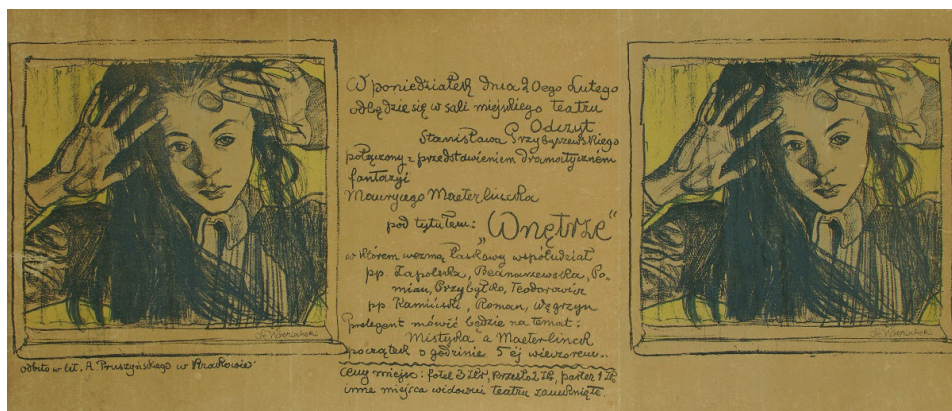 W poniedziałek dnia 20ego Lutego
odbędzie się w sali miejskiego teatru
Odczyt
Stanisława Przybyszewskiego
połączony z przedstawieniem dramatycznem
fantazyi
Maurycego Maeterlincka
pod tytułem:
„Wnętrze"
w którem wezmą łaskawy współudział
pp. Zapolska, Bednarzewska, Po-
mian, Przybyłko, Teodorowicz
pp. Kamiński, Roman, Węgrzyn
Prelegent mówić będzie na temat:
Mistyka a Maeterlinck
początek o godzinie 5ej wieczorem..
Ceny miejsc: fotel 3 Złr, krzesło 2 Zł, parter 1 Zł,
inne miejsca widowni teatru zamknięte.
St. Wyspiański
odbito w lit. A. Pruszyńskiego w Krakowie
St. Wyspiański